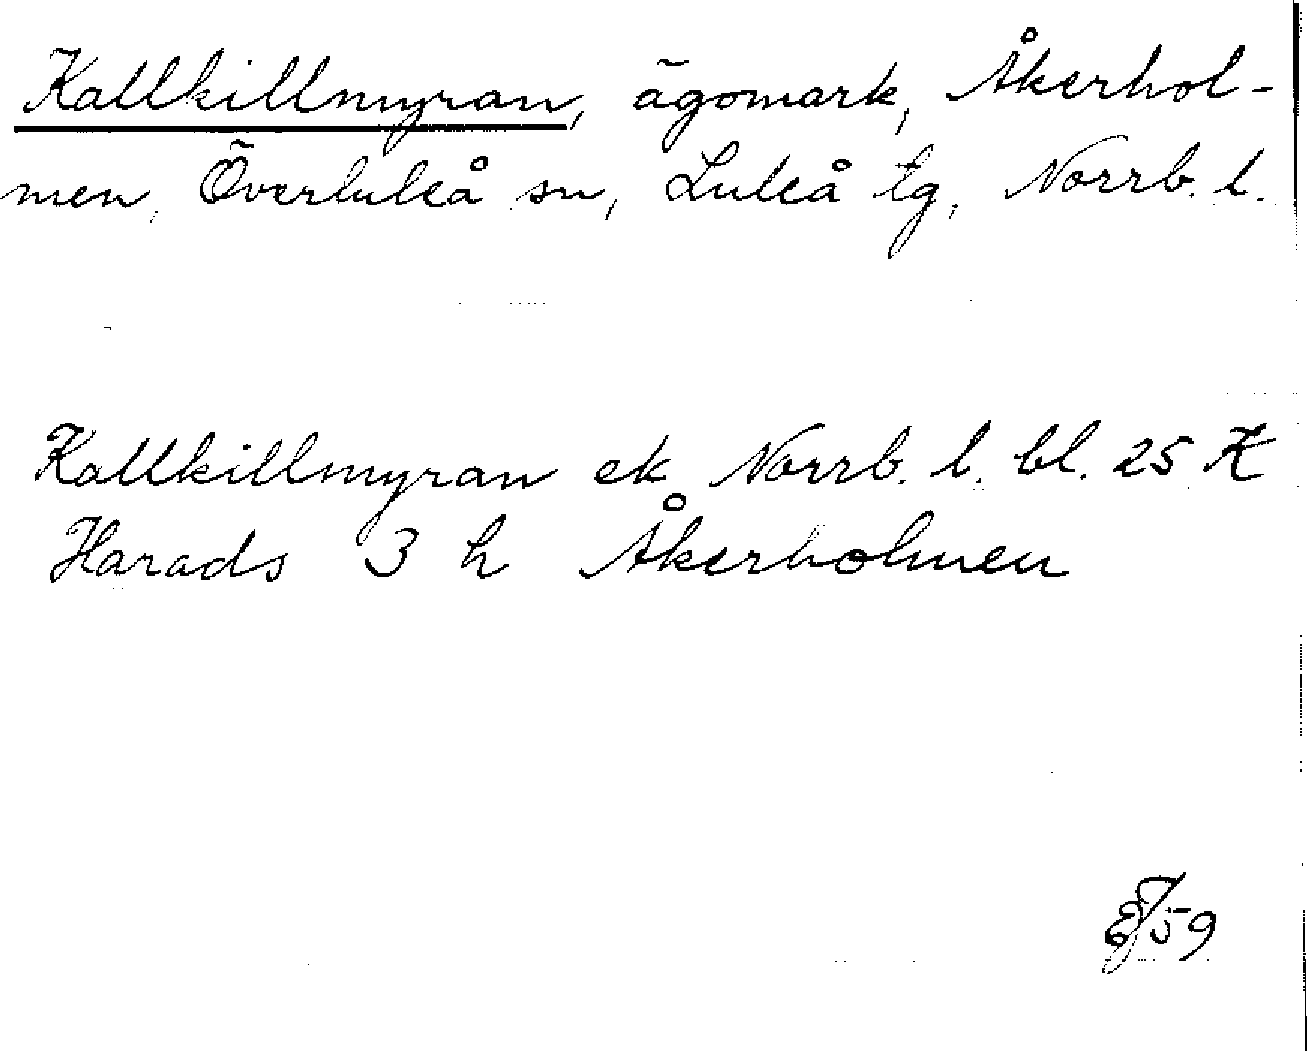 Kallkillmyran, ägomark, Åkerhol-
men, Överluleå sn, Luleå tg, Norrb. l.
Kallkillmyran ek Norrb. l. bl. 25 K
Harads 3 h Åkerholmen
EJ 59